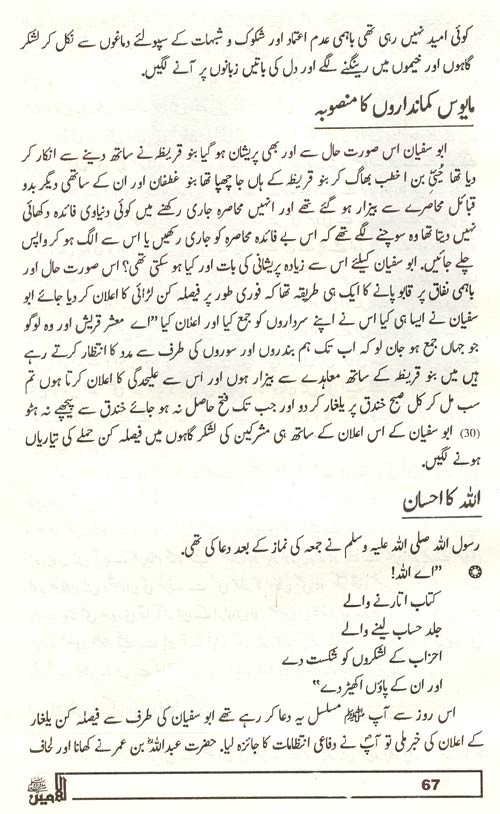 کوئی امید نہیں رہی تھی باہمی عدم اعتماد اور شکوک و شبہات کے سپولئے دماغوں سے نکل کر لشکر
گاہوں اور خیموں میں رینگنے لگے اور دل کی باتیں زبانوں پر آنے لگیں۔
مایوس کمانداروں کا منصوبہ
ابو سفیان اس صورت حال سے اور بھی پریشان ہو گیا بنو قریظہ نے ساتھ دینے سے انکار کر
دیا تھا حُیَیّ بن اخطب بھاگ کر بنو قریظہ کے ہاں جا چھپا تھا بنو غطفان اور ان کے ساتھی دیگر بدو
قبائل محاصرے سے بیزار ہو گئے تھے اور انہیں محاصرہ جاری رکھنے میں کوئی دنیاوی فائدہ دکھائی
نہیں دیتا تھا وہ سوچنے لگے تھے کہ اس بے فائدہ محاصرہ کو جاری رکھیں یا اس سے الگ ہو کر واپس
چلے جائیں۔ ابو سفیان کیلئے اس سے زیادہ پریشانی کی بات اور کیا ہو سکتی تھی؟ اس صورت حال اور
باہمی نفاق پر قابو پانے کا ایک ہی طریقہ تھا کہ فوری طور پر فیصلہ کن لڑائی کا اعلان کر دیا جائے ابو
سفیان نے ایسا ہی کیا اس نے اپنے سرداروں کو جمع کیا اور اعلان کیا "اے معشر قریش اور وہ لوگو
جو جہاں جمع ہو جان لو کہ اب تک ہم بندروں اور سوروں کی طرف سے مدد کا انتظار کرتے رہے
ہیں میں بنو قریظہ کے ساتھ معاہدے سے بیزار ہوں اور اس سے علیحدگی کا اعلان کرتا ہوں تم
سب مل کر کل صبح خندق پر یلغار کر دو اور جب تک فتح حاصل نہ ہو جائے خندق سے پیچھے نہ ہٹو
(30) ابو سفیان کے اس اعلان کے ساتھ ہی مشرکین کی لشکر گاہوں میں فیصلہ کن حملے کی تیاریاں
ہونے لگیں۔
اللہ کا احسان
رسول اللہ صلی اللہ علیہ وسلم نے جمعہ کی نماز کے بعد دعا کی تھی۔
"اے اللہ!
کتاب اتارنے والے
جلد حساب لینے والے
احزاب کے لشکروں کو شکست دے
اور ان کے پاؤں اکھیڑ دے"
اس روز سے آپ ﷺ مسلسل یہ دعا کر رہے تھے ابو سفیان کی طرف سے فیصلہ کن یلغار
کے اعلان کی خبر ملی تو آپؐ نے دفاعی انتظامات کا جائزہ لیا۔ حضرت عبداللہؓ بن عمر نے کھانا اور لحاف
67
الامین ﷺ